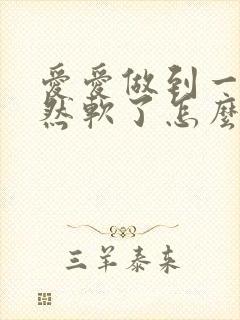 愛愛做到一
然軟了怎麼
三羊泰来